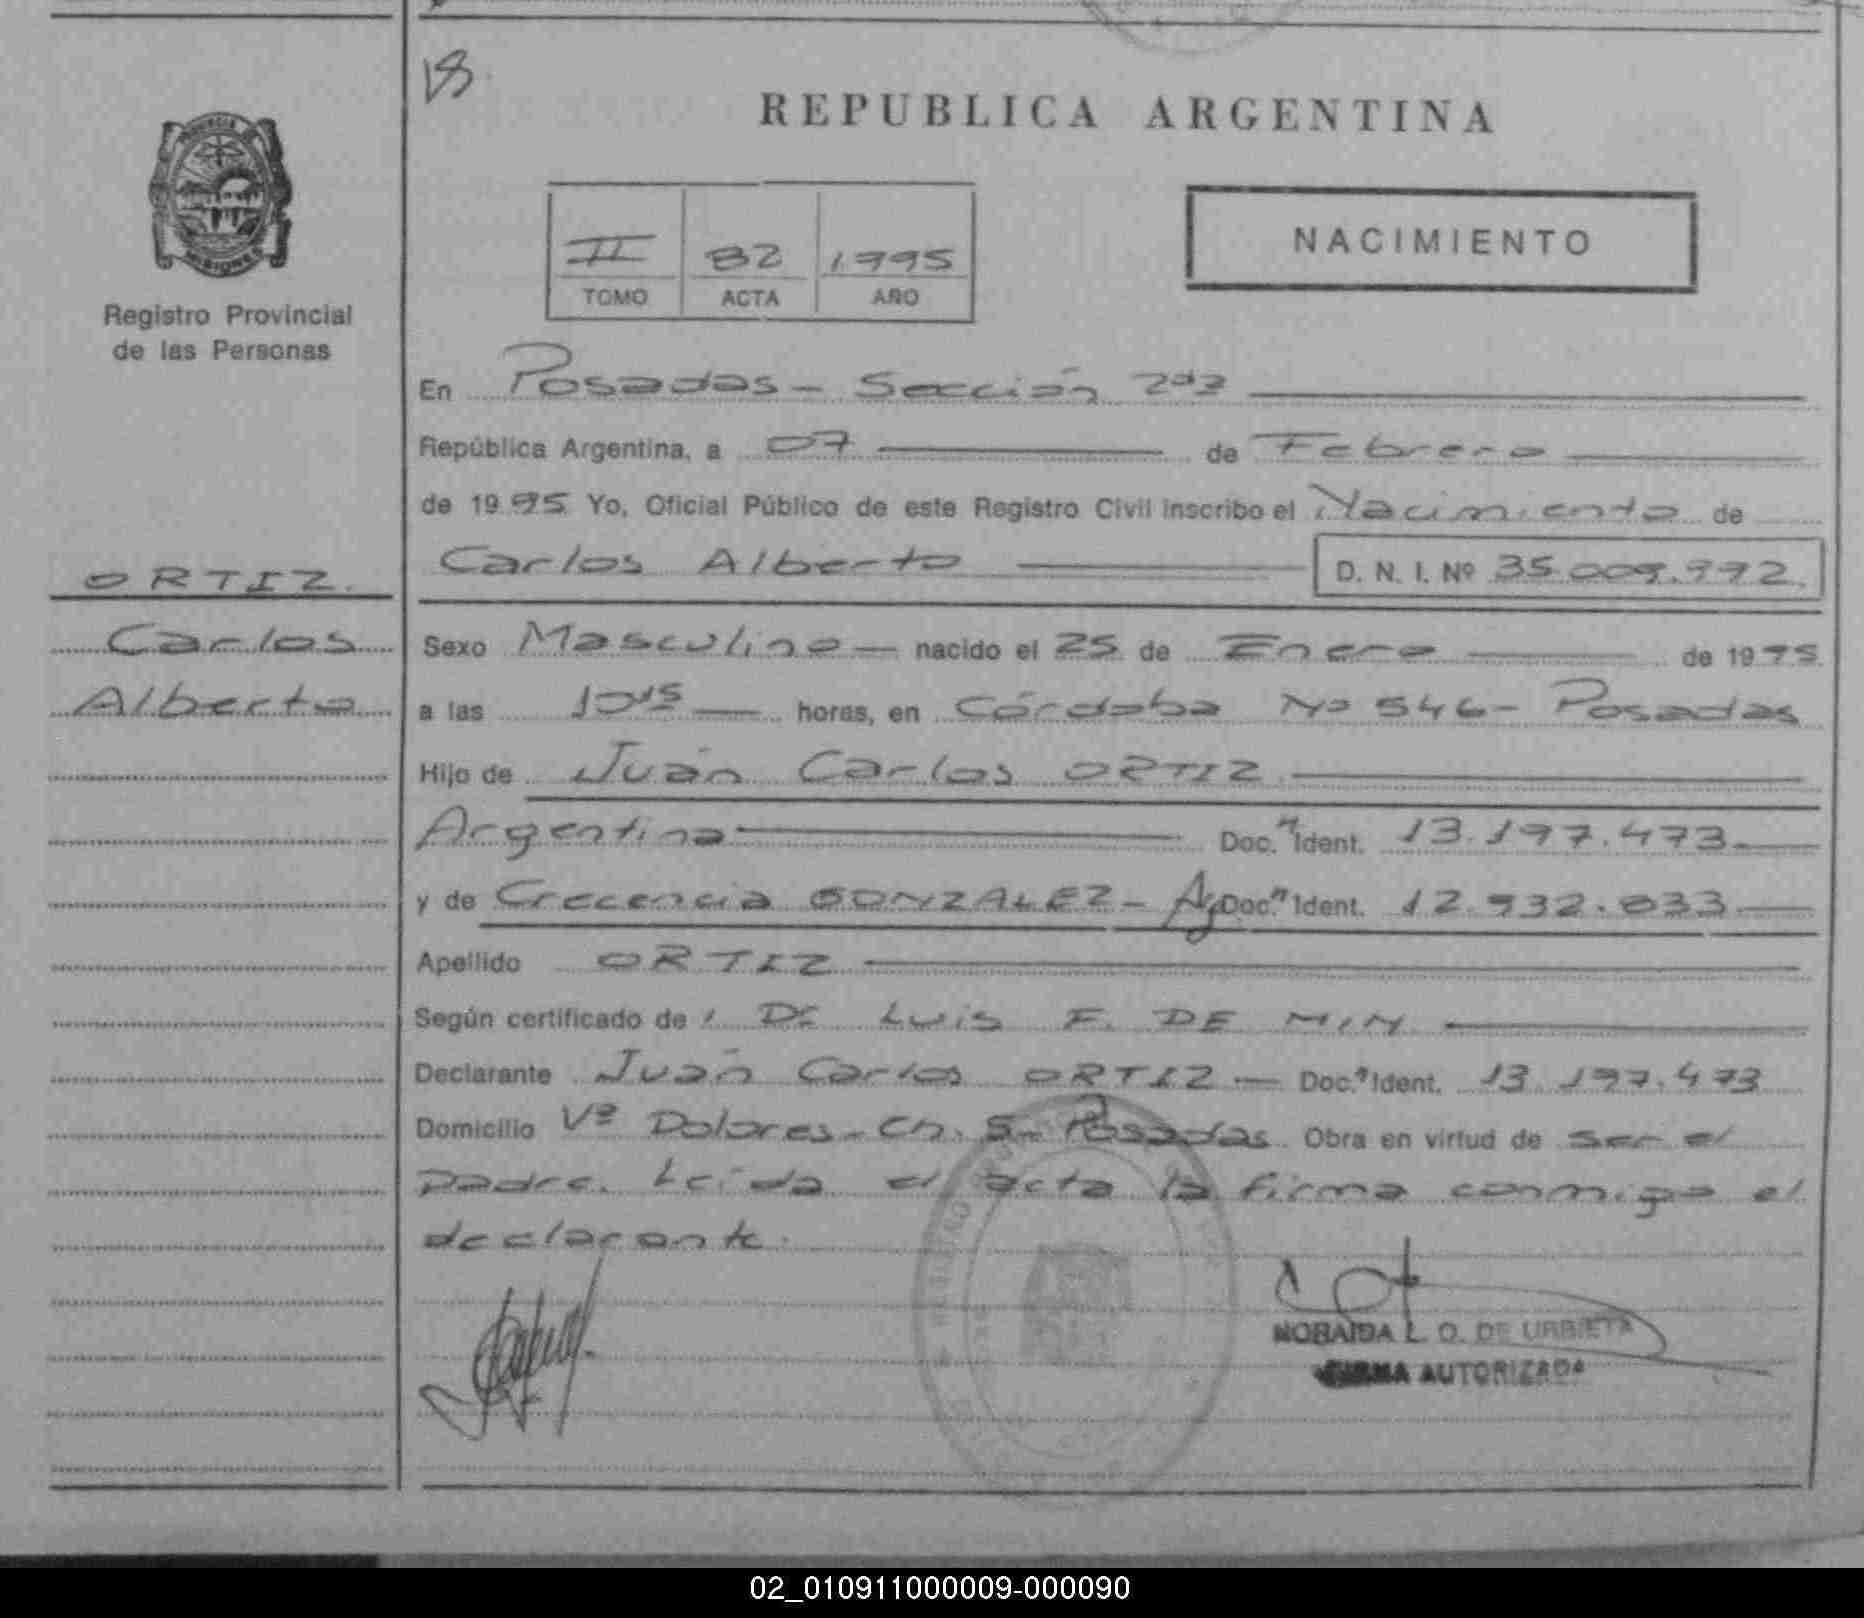 18
REPUBLICA ARGENTINA
MISIONES
Registro Provincial
de las Personas
II 82 1995
TOMO ACTA AÑO
NACIMIENTO
En Posadas - Sección 2da
República Argentina, a 07 de Febrero
de 1995 Yo, Oficial Público de este Registro Civil inscribo el Nacimiento de
Carlos Alberto D. N. I. Nº 35.009.992
ORTIZ.
Carlos
Alberto
Sexo Masculino - nacido el 25 de Enero de 1995
a las 10 15 horas, en Córdoba Nº 546 - Posadas
Hijo de Juán Carlos ORTIZ
Argentina Doc. Ident. 13.197.473
y de Crecencia GONZALEZ - Doc. Ident. 12.932.833
Apellido ORTIZ
Según certificado de Dr. LUIS F. DE MIN
Declarante Juán Carlos ORTIZ - Doc. Ident. 13.197.473
Domicilio Vª Dolores - Ch. 5 - Posadas Obra en virtud de ser el
padre. Leída el acta la firma conmigo el
declarante.
L. O. DE URBIETA
FIRMA AUTORIZADA
02_010911000009-000090